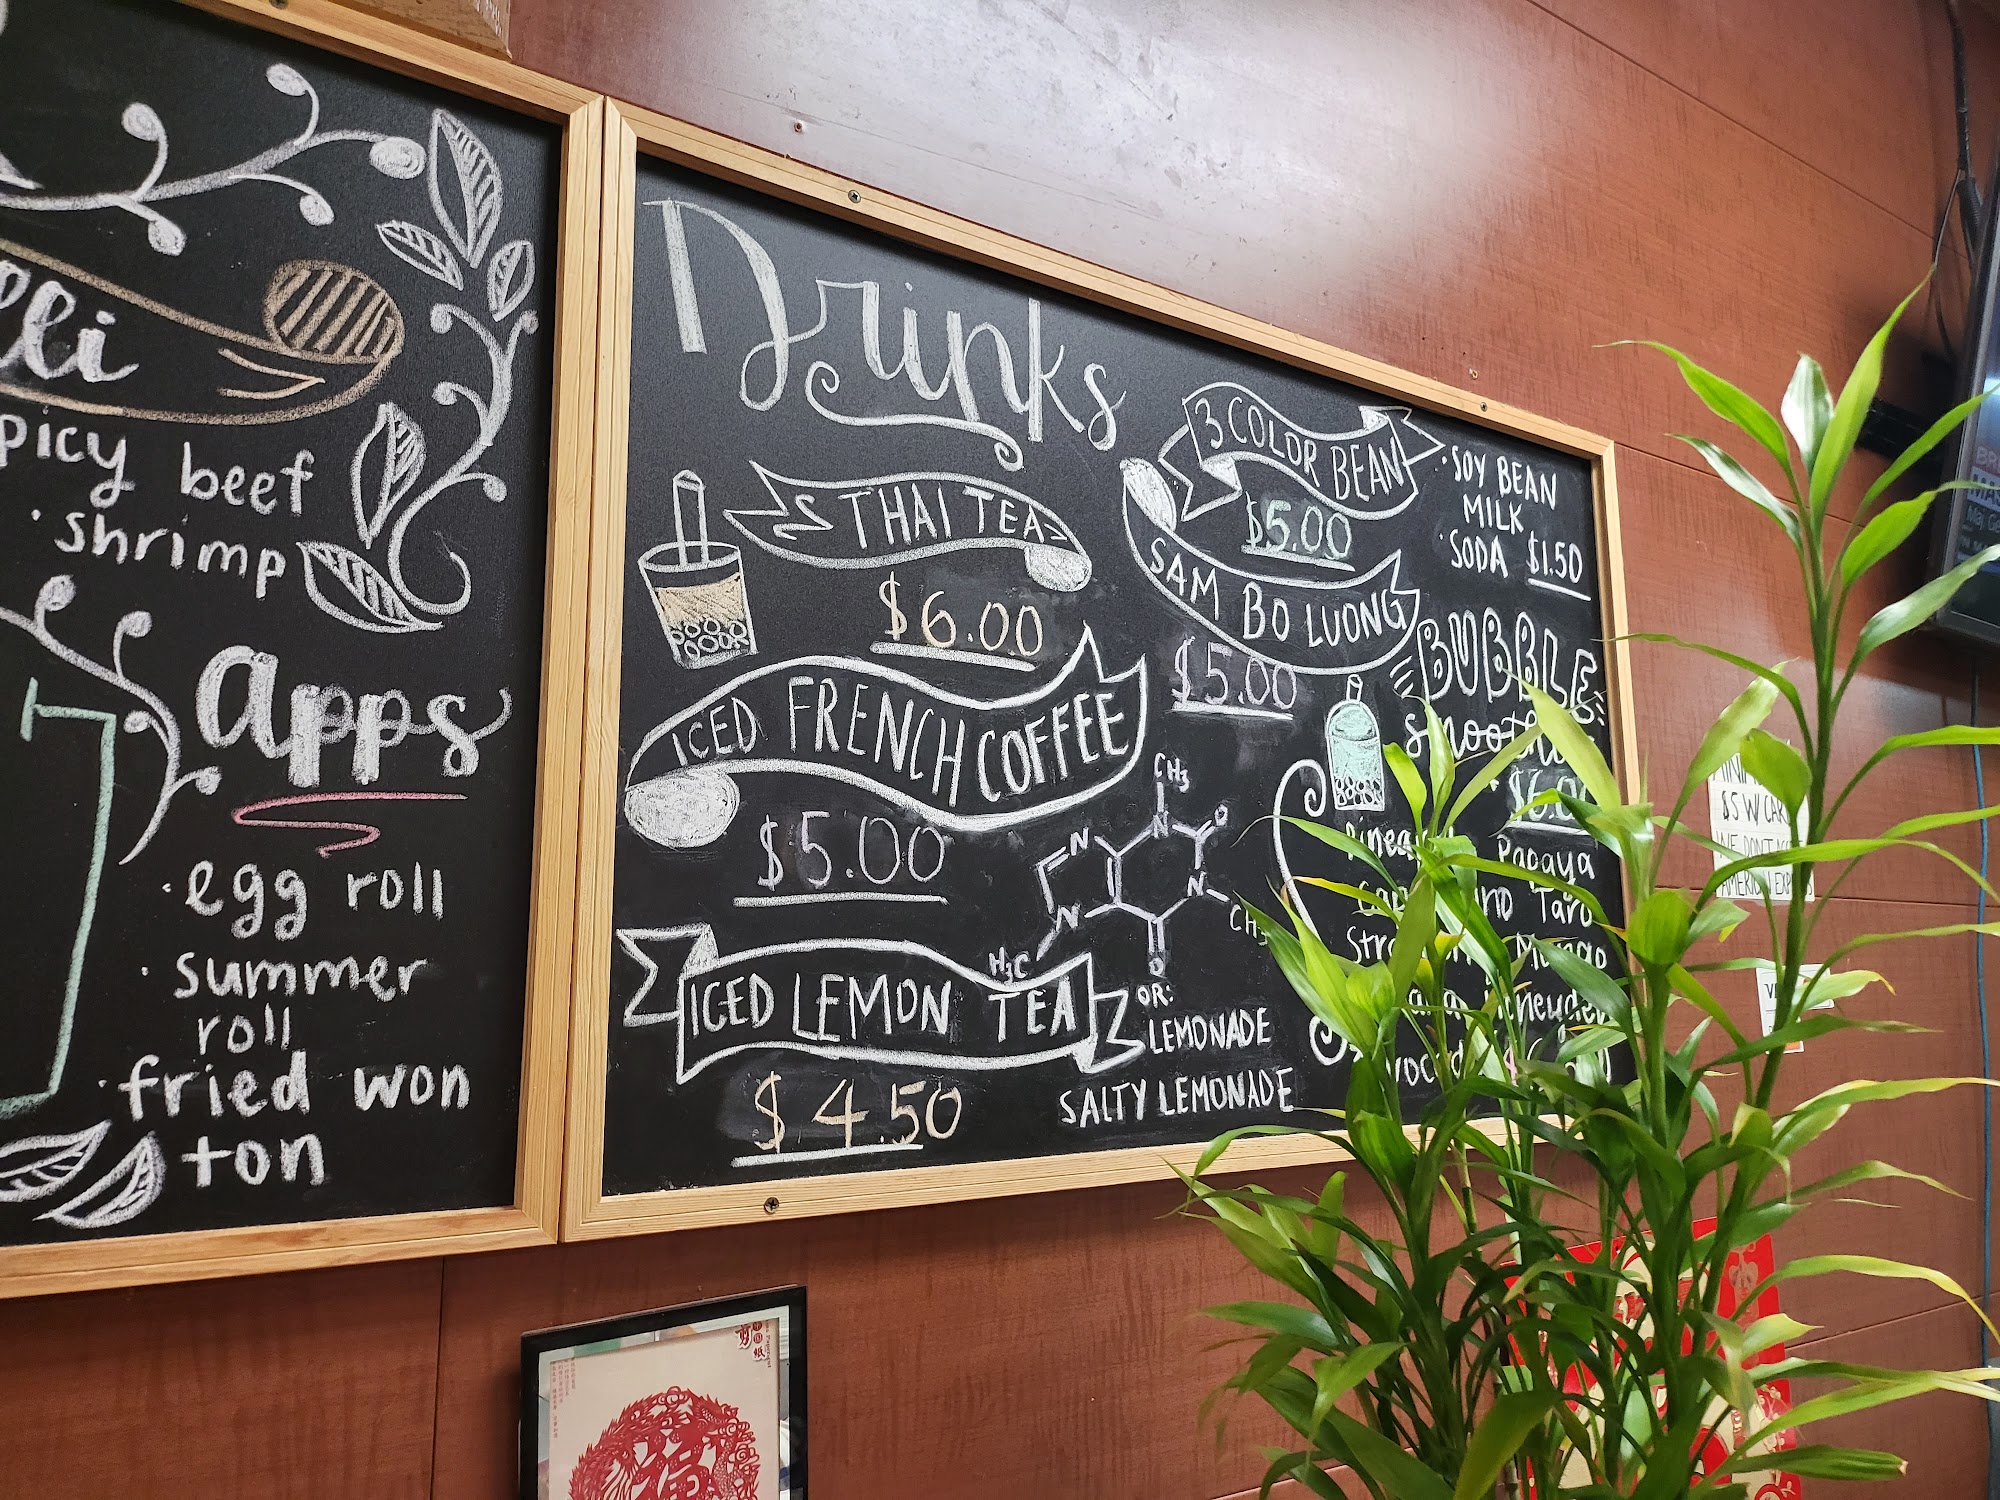 beef
shrimp
apps
· egg roll
· summer
roll
· fried won
ton
Drinks
THAI TEA
$6.00
ICED FRENCH COFFEE
$5.00
ICED LEMON TEA
$4.50
OR:
LEMONADE
SALTY LEMONADE
CH3
N
O
N
N
N
CH3
O
H3C
3 COLOR BEAN
$5.00
SAM BO LUONG
$5.00
· SOY BEAN
MILK
· SODA $1.50
BUBBLE
Papaya
Taro
Mango
$5 W/
WE DON'T
AMERICAN
剪纸